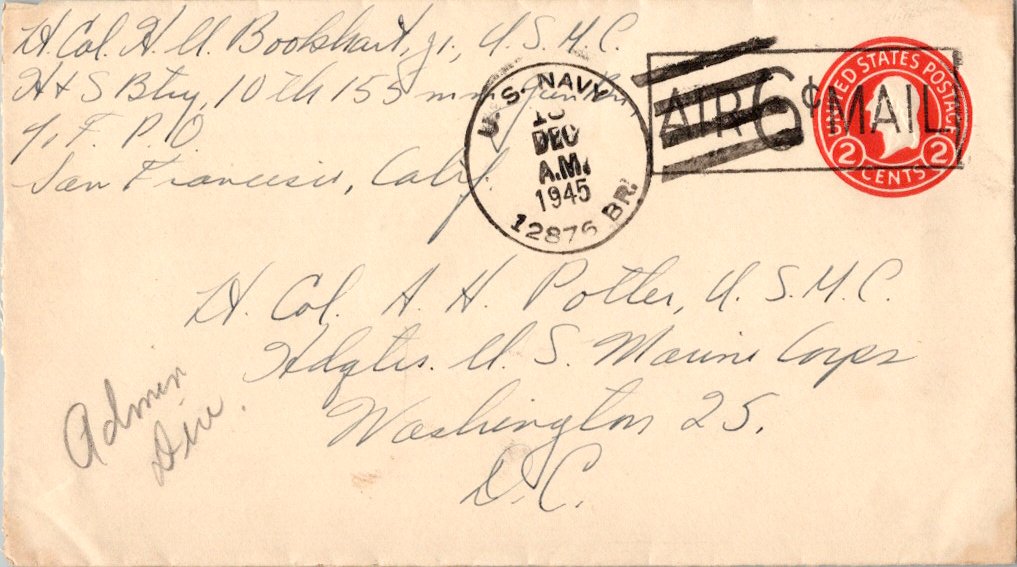 Lt. Col. H. U. Bookhart, jr., U. S. M. C.
H + S Btry, 10 th 155 mm
F. P. O.
San Francisco, Calif.
U. S. NAVY
DEC
A.M.
1945
12876 BR.
AIR 6¢ MAIL
UNITED STATES POSTAGE
2 2
CENTS
Lt. Col. A. H. Potter, U. S. M. C.
Hdqtrs. U. S. Marine Corps
Washington 25,
D. C.
Admin
Div.